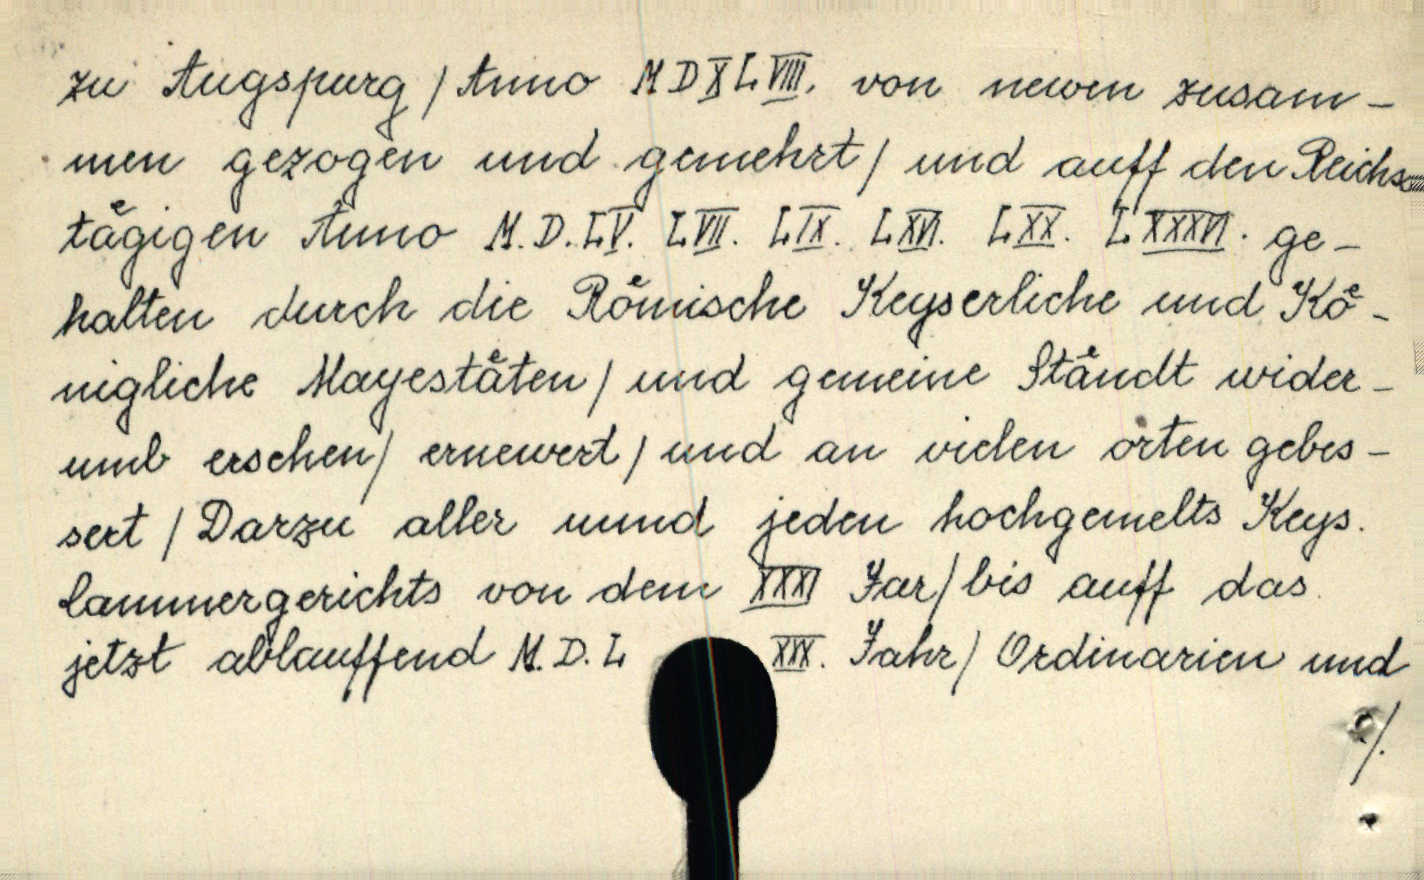 zu Augspurg / Anno MDXLVIII. von newen zusam-
men gezogen und gemehrt / und auff den Reichs-
taͤgigen Anno M.D.LV. LVII. LIX. LXVI. LXX. LXXXVI. ge-
halten durch die Roͤmische Keyserliche und Koͤ-
nigliche Mayestaͤten / und gemeine Staͤndt wider-
umb ersehen / ernewert / und an vielen orten gebes-
sert / Darzu aller unnd jeden hochgemelts Keys.
Cammergerichts von dem XXXI Jar / bis auff das
jetzt ablauffend M.D.L XIX. Jahr / Ordinarien und
./.